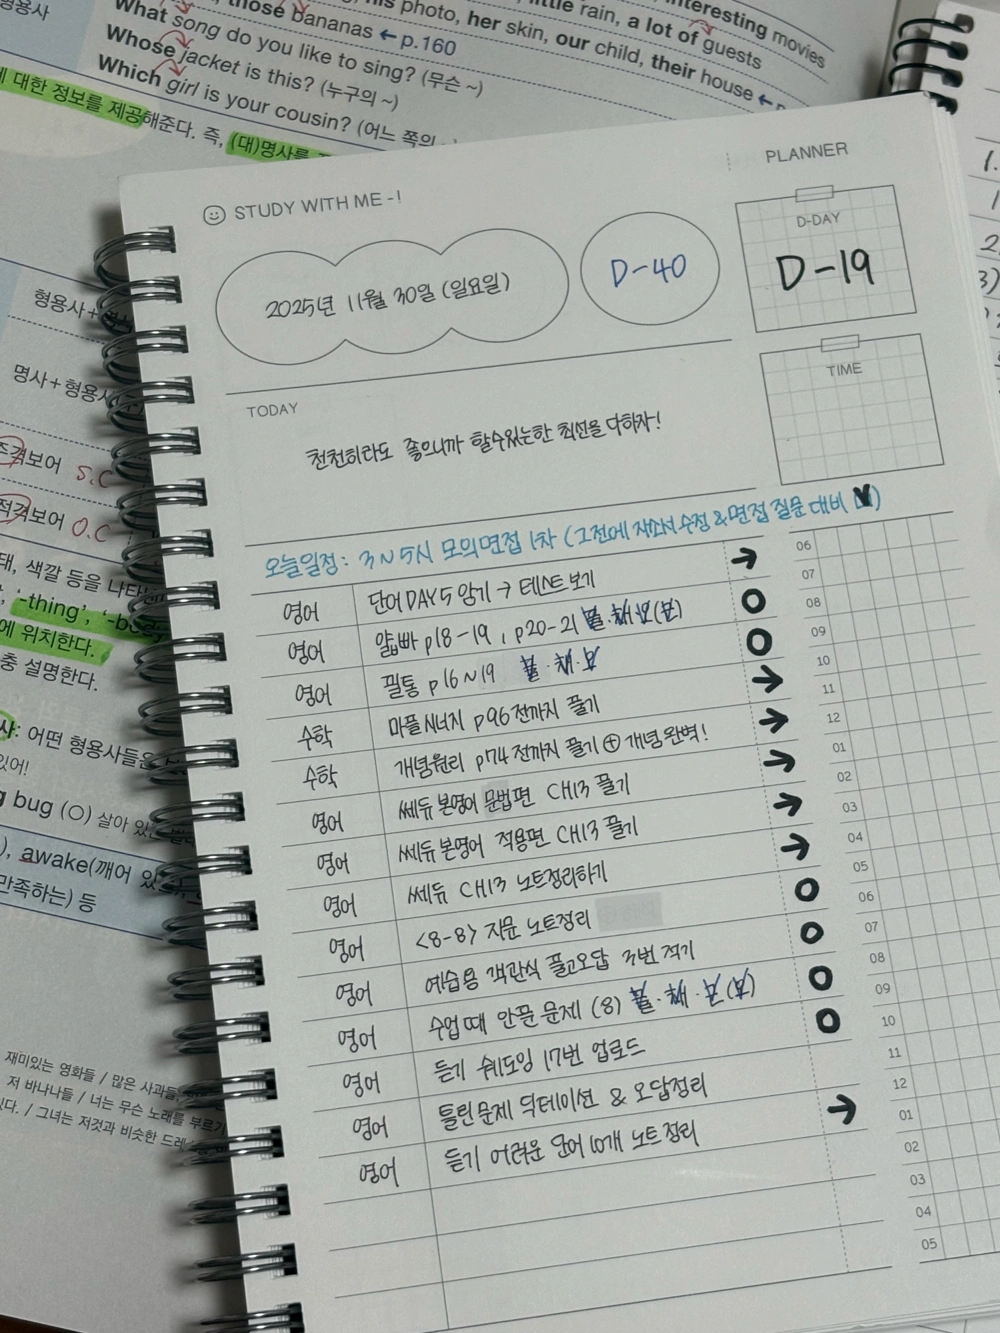 형용사
those bananas ← p.160
his photo, her skin, our child, their house ←
little rain, a lot of guests
interesting movies
What song do you like to sing? (무슨 ~)
Whose jacket is this? (누구의 ~)
Which girl is your cousin? (어느 쪽의
에 대한 정보를 제공해준다. 즉, (대)명사를
형용사+
명사+형용사
주격보어 S.C
목적격보어 O.C
태, 색깔 등을 나타
'-thing',
에 위치한다.
충 설명한다.
사: 어떤 형용사들은
있어!
g bug (○) 살아 있는
), awake(깨어 있
만족하는) 등
재미있는 영화들 / 많은 사과들
저 바나나들 / 너는 무슨 노래를 부르기
있다. / 그녀는 저것과 비슷한 드레
STUDY WITH ME -!
PLANNER
2025년 11월 30일 (일요일)
D-40
D-DAY
D-19
TIME
TODAY
천천히라도 좋으니까 할수있는한 최선을 다하자!
오늘일정: 3~5시 모의면접 1차 (그전에 자소서 수정 & 면접 질문 대비)
영어 단어 DAY5 암기 → 테스트 보기 →
영어 얇빠 p18-19, p20-21 풀·채·오(보) O
영어 필통 p16~19 풀·채·보 O
수학 마플시너지 p96전까지 풀기 →
수학 개념원리 p74전까지 풀기 ⊕ 개념 완벽! →
영어 쎄듀 본영어 문법편 CH13 풀기 →
영어 쎄듀 본영어 적용편 CH13 풀기 →
영어 쎄듀 CH13 노트정리하기 →
영어 <8-8> 지문 노트정리 O
영어 예습용 객관식 풀고오답 3번 적기 O
영어 수업때 안푼 문제 (8) 풀·채·오(보) O
영어 듣기 쉐도잉 17번 업로드 O
영어 틀린문제 딕테이션 & 오답정리
영어 듣기 어려운 단어 10개 노트정리 →
06
07
08
09
10
11
12
01
02
03
04
05
06
07
08
09
10
11
12
01
02
03
04
05
1.